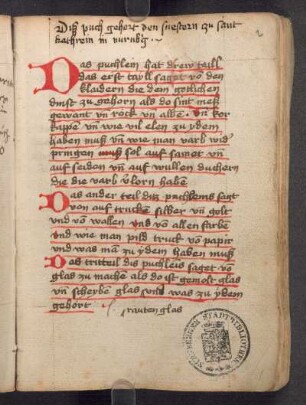 Diß puch gehort den swestern zu sant
kathrein in nurnbg
2
Das puchlein hat drew taill
das erst tayll saget võ den
klaidern die dem gotlichen
dinst zu gehorn als do sint meß
gewant vñ rock vñ alben vñ kor
kappẽ vñ wie vil elen zu ydem
haben muß vñ wie man varb wid
pringen muß sol auf samot vñ
auf seidon vñ auf wullen duchern
die die varb vlorn habẽ
Das ander teil ditz puchleins sagt
von auf trucken silber vñ golt
vnd võ wassen vnd võ allen farbẽ
vnd wie man pild truck võ papir
vnd was mã zu ydem haben muß
Das tritteil dis puchleins saget võ
glas zu machẽ als do ist gemolt glas
vñ scheyben glas vnd was zu ydem
gehort
rauten glas
STADTBIBLIOTHEK